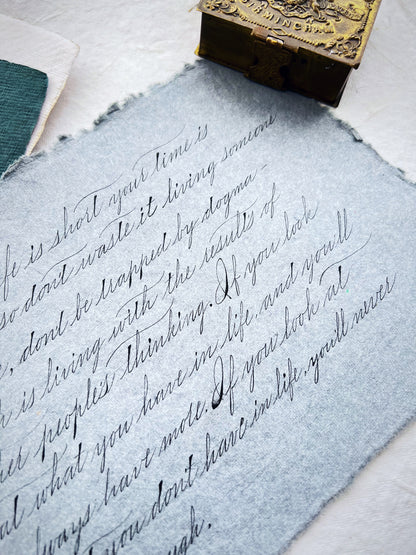 BIRMINGHAM
fe is short your time is
so dont waste it living someone
, dont be trapped by dogma -
h is living with the results of
her people's thinking. If you look
at what you have in life, and you'll
lways have more. If you look at
you don't have in life, you'll never
ugh.